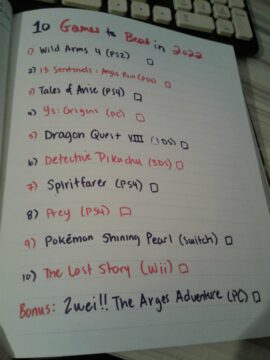 10 Games to Beat in 2022
1) Wild Arms 4 (PS2)
2) 13 Sentinels: Aegis Rim (PS4)
3) Tales of Arise (PS4)
4) Ys: Origins (PC)
5) Dragon Quest VIII (3DS)
6) Detective Pikachu (3DS)
7) Spiritfarer (PS4)
8) Prey (PS4)
9) Pokémon Shining Pearl (Switch)
10) The Last Story (Wii)
Bonus: Zwei!! The Arges Adventure (PC)